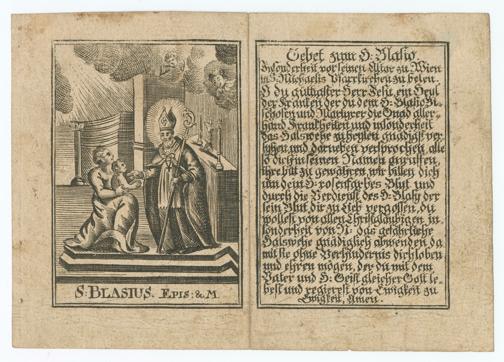 S. BLASIUS. EPIS: & M.
Gebet zum H: Blasio.
Insonderheit vor seinen Altar zu Wien
in S. Michaelis Pfarrkirchen zu beten.
O du gütigster Herr Jesu, ein Heyl
der Kranken der du dem H: Blasio Bi-
schofen und Martyrer die Gnad aller-
hand Krankheiten und insonderheit
das Halswehe zu heylen gnädigst ver-
lyhen, und darneben versprochen, alle
so dich in seinen Namen anruffen,
ihre bitt zu gewähren, wir bitten dich
um dein H: rosenfarbes Blut, und
durch die Verdienst des H: Blasy der
sein Blut dir zu Lieb vergossen, du
wollest von allen Christglaubigen, in-
sonderheit von N: das gefährliche
Halswehe gnädiglich abwenden, da-
mit sie ohne Verhindernus dich loben
und ehren mögen, der du mit dem
Vater und H: Geist gleicher Gott le-
best und regierest von Ewigkeit zu
Ewigkeit, Amen.